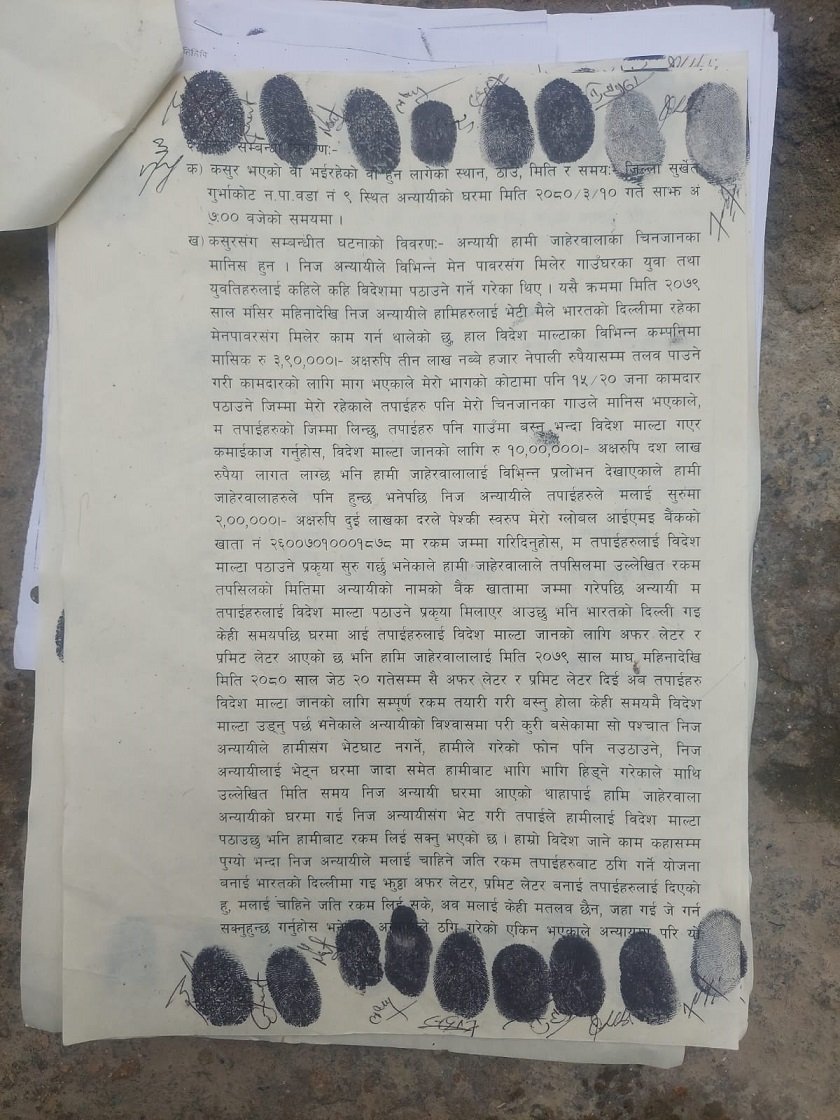 सम्बन्धी विवरण:-
क) कसुर भएको वा भईरहेको वा हुन लागेको स्थान, ठाउँ, मिति र समय:- जिल्ला सुर्खेत
गुर्भाकोट न.पा.वडा नं ९ स्थित अन्यायीको घरमा मिति २०८०/३/१० गते साझ अं
७:०० बजेको समयमा ।
ख) कसुरसंग सम्बन्धीत घटनाको विवरण:- अन्यायी हामी जाहेरवालाका चिनजानका
मानिस हुन । निज अन्यायीले विभिन्न मेन पावरसंग मिलेर गाउँघरका युवा तथा
युवतिहरुलाई कहिले कहि विदेशमा पठाउने गर्ने गरेका थिए । यसै क्रममा मिति २०७९
साल मंसिर महिनादेखि निज अन्यायीले हामिहरुलाई भेटी मैले भारतको दिल्लीमा रहेका
मेनपावरसंग मिलेर काम गर्न थालेको छु, हाल विदेश माल्टाका विभिन्न कम्पनिमा
मासिक रु ३,९०,०००।- अक्षरुपि तीन लाख नब्बे हजार नेपाली रुपैयासम्म तलव पाउने
गरी कामदारको लागि माग भएकाले मेरो भागको कोटामा पनि १५/२० जना कामदार
पठाउने जिम्मा मेरो रहेकाले तपाईहरु पनि मेरो चिनजानका गाउले मानिस भएकाले,
म तपाईहरुको जिम्मा लिन्छु, तपाईहरु पनि गाउँमा बस्नु भन्दा विदेश माल्टा गएर
कमाईकाज गर्नुहोस, विदेश माल्टा जानको लागि रु १०,००,०००।- अक्षरुपि दश लाख
रुपैया लागत लाग्छ भनि हामी जाहेरवालालाई विभिन्न प्रलोभन देखाएकाले हामी
जाहेरवालाहरुले पनि हुन्छ भनेपछि निज अन्यायीले तपाईहरुले मलाई सुरुमा
२,००,०००।- अक्षरुपि दुई लाखका दरले पेश्की स्वरुप मेरो ग्लोबल आईएमइ बैंकको
खाता नं २६००७०१०००१८७८ मा रकम जम्मा गरिदिनुहोस, म तपाईहरुलाई विदेश
माल्टा पठाउने प्रकृया सुरु गर्छु भनेकाले हामी जाहेरवालाले तपसिलमा उल्लेखित रकम
तपसिलको मितिमा अन्यायीको नामको बैक खातामा जम्मा गरेपछि अन्यायी म
तपाईहरुलाई विदेश माल्टा पठाउने प्रकृया मिलाएर आउछु भनि भारतको दिल्ली गइ
केही समयपछि घरमा आई तपाईहरुलाई विदेश माल्टा जानको लागि अफर लेटर र
प्रमिट लेटर आएको छ भनि हामि जाहेरवालालाई मिति २०७९ साल माघ महिनादेखि
मिति २०८० साल जेठ २० गतेसम्म सै अफर लेटर र प्रमिट लेटर दिई अब तपाईहरु
विदेश माल्टा जानको लागि सम्पूर्ण रकम तयारी गरी बस्नु होला केही समयमै विदेश
माल्टा उड्नु पर्छ भनेकाले अन्यायीको विश्वासमा परी कुरी बसेकामा सो पश्चात निज
अन्यायीले हामीसंग भेटघाट नगर्ने, हामीले गरेको फोन पनि नउठाउने, निज
अन्यायीलाई भेट्न घरमा जादा समेत हामीबाट भागि भागि हिड्ने गरेकाले माथि
उल्लेखित मिति समय निज अन्यायी घरमा आएको थाहापाई हामि जाहेरवाला
अन्यायीको घरमा गई निज अन्यायीसंग भेट गरी तपाईले हामीलाई विदेश माल्टा
पठाउछु भनि हामीबाट रकम लिई सक्नु भएको छ । हाम्रो विदेश जाने काम कहासम्म
पुग्यो भन्दा निज अन्यायीले मलाई चाहिने जति रकम तपाईहरुबाट ठगि गर्ने योजना
बनाई भारतको दिल्लीमा गइ झुट्ठा अफर लेटर, प्रमिट लेटर बनाई तपाईहरुलाई दिएको
हु, मलाई चाहिने जति रकम लिई सके, अव मलाई केही मतलव छैन, जहा गई जे गर्न
सक्नुहुन्छ गर्नुहोस ठगि गरेको एकिन भएकाले अन्यायमा परि यो